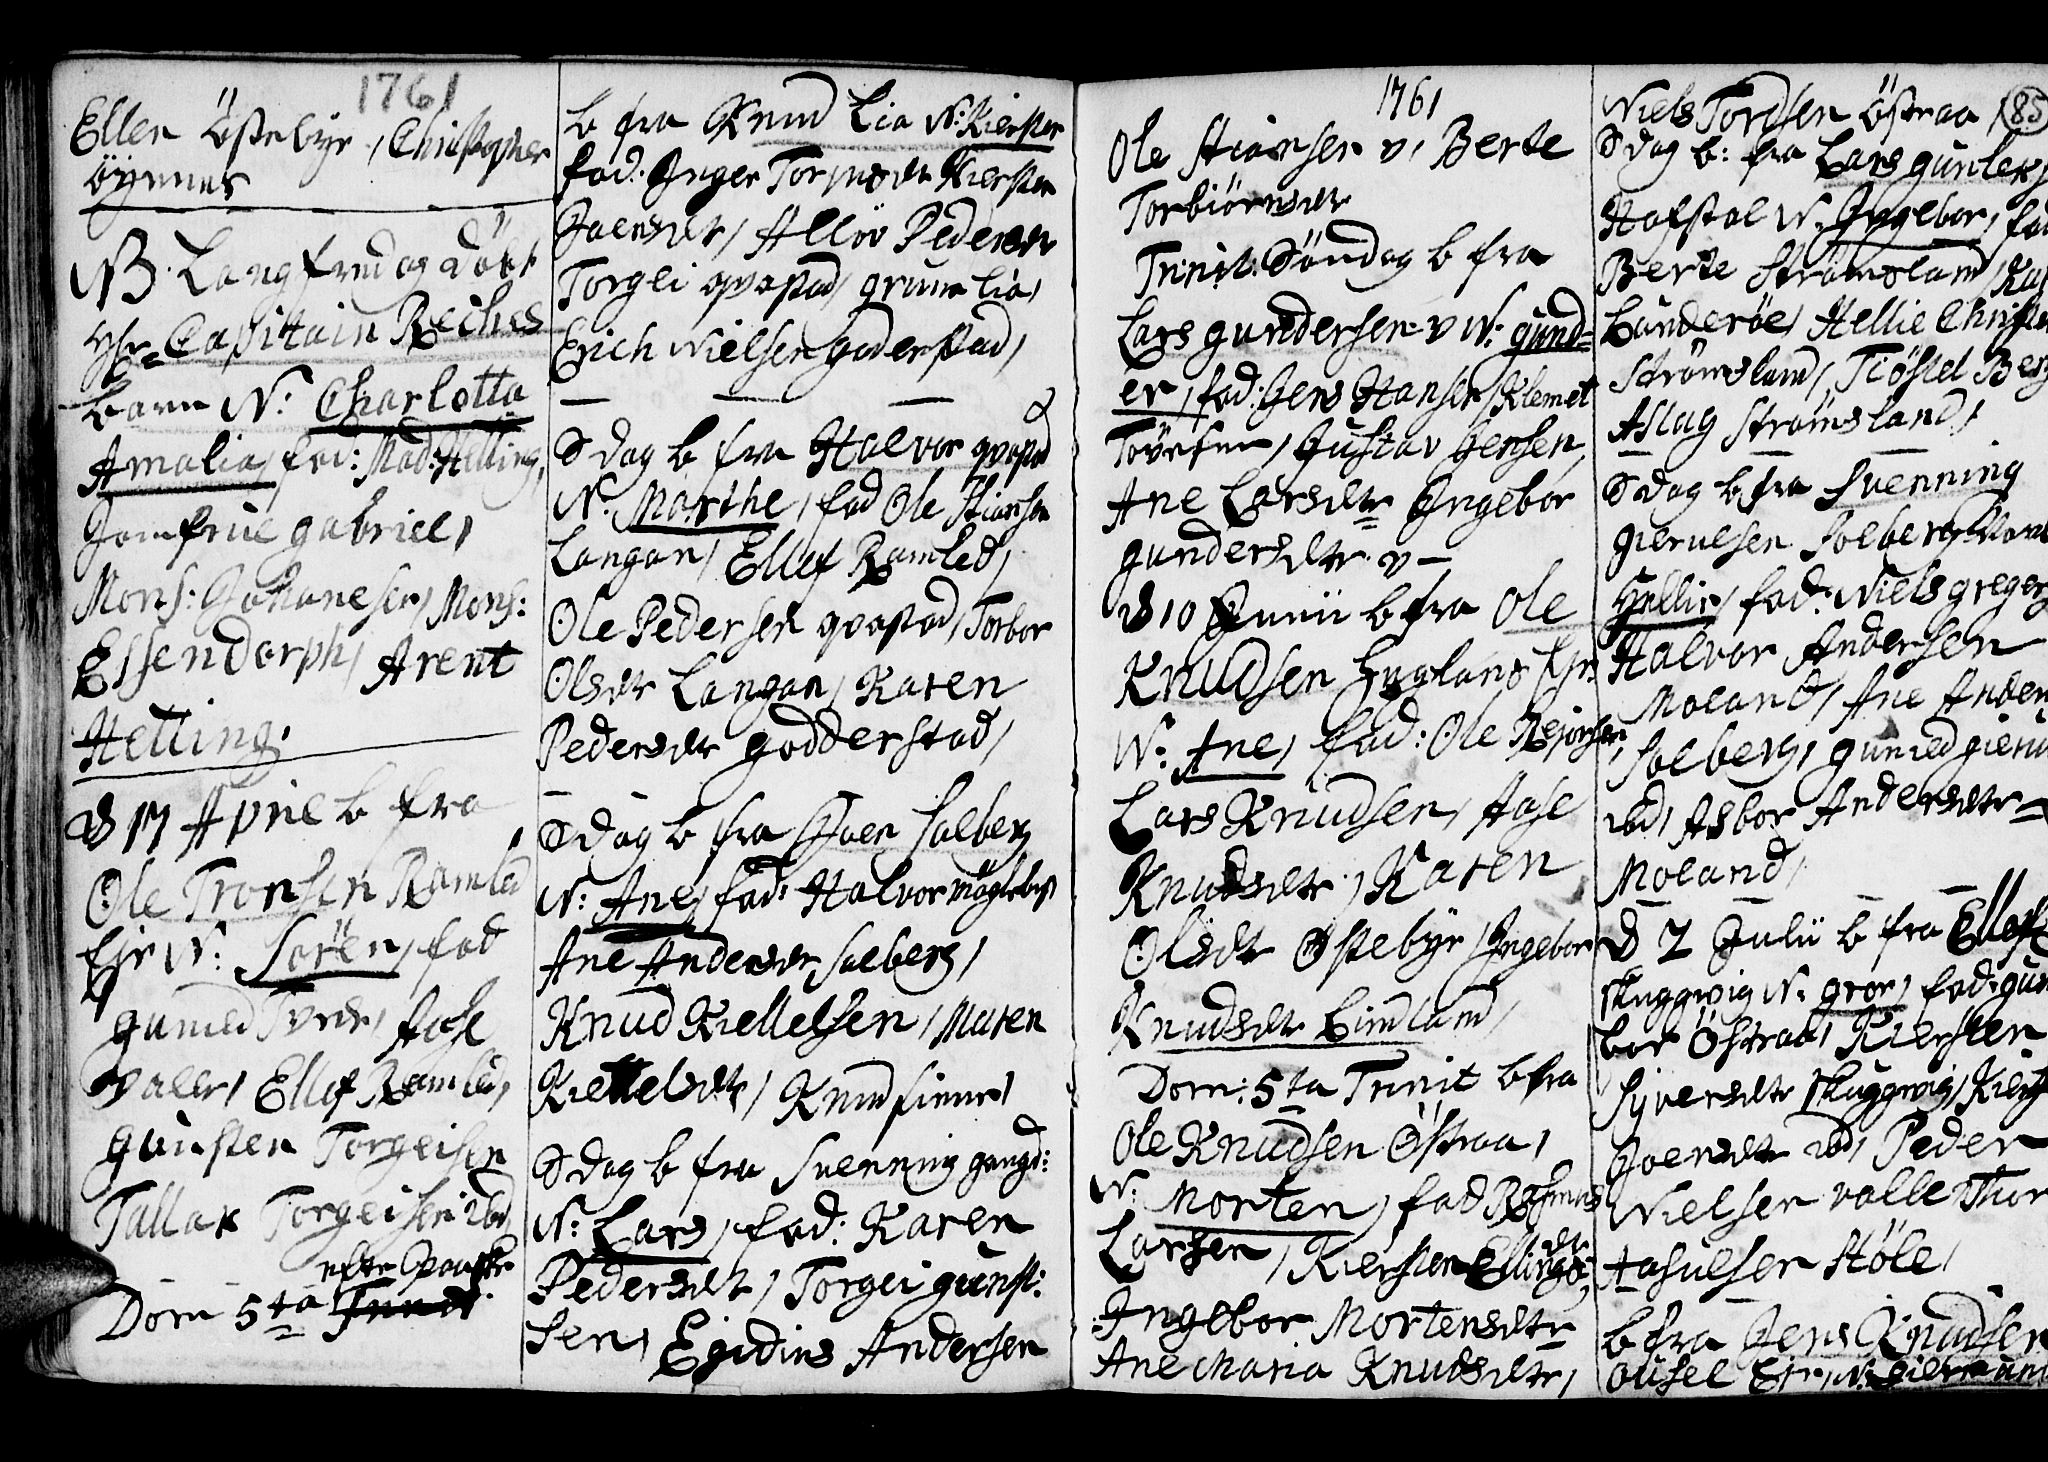 1761
Ellen Östebye, Christopher
öynnes
NB. Langfredag döbt
Hr Capitain Reiches
barn N: Charlotta
Amalia, fad: Mad: Helting,
Jomfrue gabriel,
Mons: Johanesen, Mons:
Essendorph, Arent
Helting.
D 17 April b fra
Ole Tronsen Ramled
Ejr N: Sören, fad
guneld Tvede, Aase
valle, Ellef Ramled,
gunsten Torgeisen
Tallak Torgeisen ibd,
efter Paaske
Dom 5ta Trinit.
b fra Knud Lia N: Kiersten
fad: Inger Torjusdtr Kiersten
Joensdtr, Allov Pedersdtr
Torgei qvastad, grum lia,
Erich Nielsen goderstad,
S dag b fra Halvor qvastad
N. Marthe, fad Ole Stiansen
Langan, Ellef Ramled,
Ole Pedersen qvastad, Torbor
Olsdtr Langan, Karen
Pedersdtr godderstad,
S dag b fra Joen Solberg
N: Ane, fad: Halvor
Ane Andersdtr Solberg,
Knud Kiettelsen, Maren
Kiettelsdtr, Knud finne,
S dag b fra Svenning gangd:
N: Lars, fad: Karen
Pedersdtr, Torgei gunst:
sen, Egidius Andersen
1761
Ole Stiansen v, Berte
Torbiörnsdtr
Trinit: Söndag b fra
Lars gundersen v N: gund=
er, fad: Jens Hansen, Klemet
Tovesen, Gustav Jensen,
Ane Larsdtr Ingebor
gundersdtr. v –
D 10 Junii b fra Ole
Knudsen England Ejr
N: Ane, fad: Ole Rejorsen,
Lars Knudsen, Aase
Knudsdtr, Karen
Olsdtr Östebye, Ingebor
Knudsdtr Lindland,
Dom: 5ta Trinit b fra
Ole Knudsen Östraa,
N: Morten, fad Rasmus
Larsen, Kiersten Ellingsdtr,
Ingebor Mortensdtr
Ane Maria Knudsdtr,
85
Niels Tordsen Östraa,
S dag b: fra Lars gunlek
Hafstol N. Ingebor, fad
Berte Strömsland, Ka
Landeröe, Hellie Christ
Strömsland, Tiöstel Berg
Aslag Strömsland,
S dag b fra Svenning
gierulsen Solberg
Hellie, fad: Niels greger
Halvor Andersen
Moland, Ane Ander
Solberg, guneld gieru
ibd, Asbor Andersdtr
Moland,
D 2 Julii b fra Ellef
Skuggevig N: gror, fad: gun
bor Östraa, Kiersten
Syversdtr Skuggevig, Kierst
Joensdtr ibd, Peder
Nielsen valle Thor
Aasulsen Höle,
b fra Jens Knudsen
ousel Ejr, N: